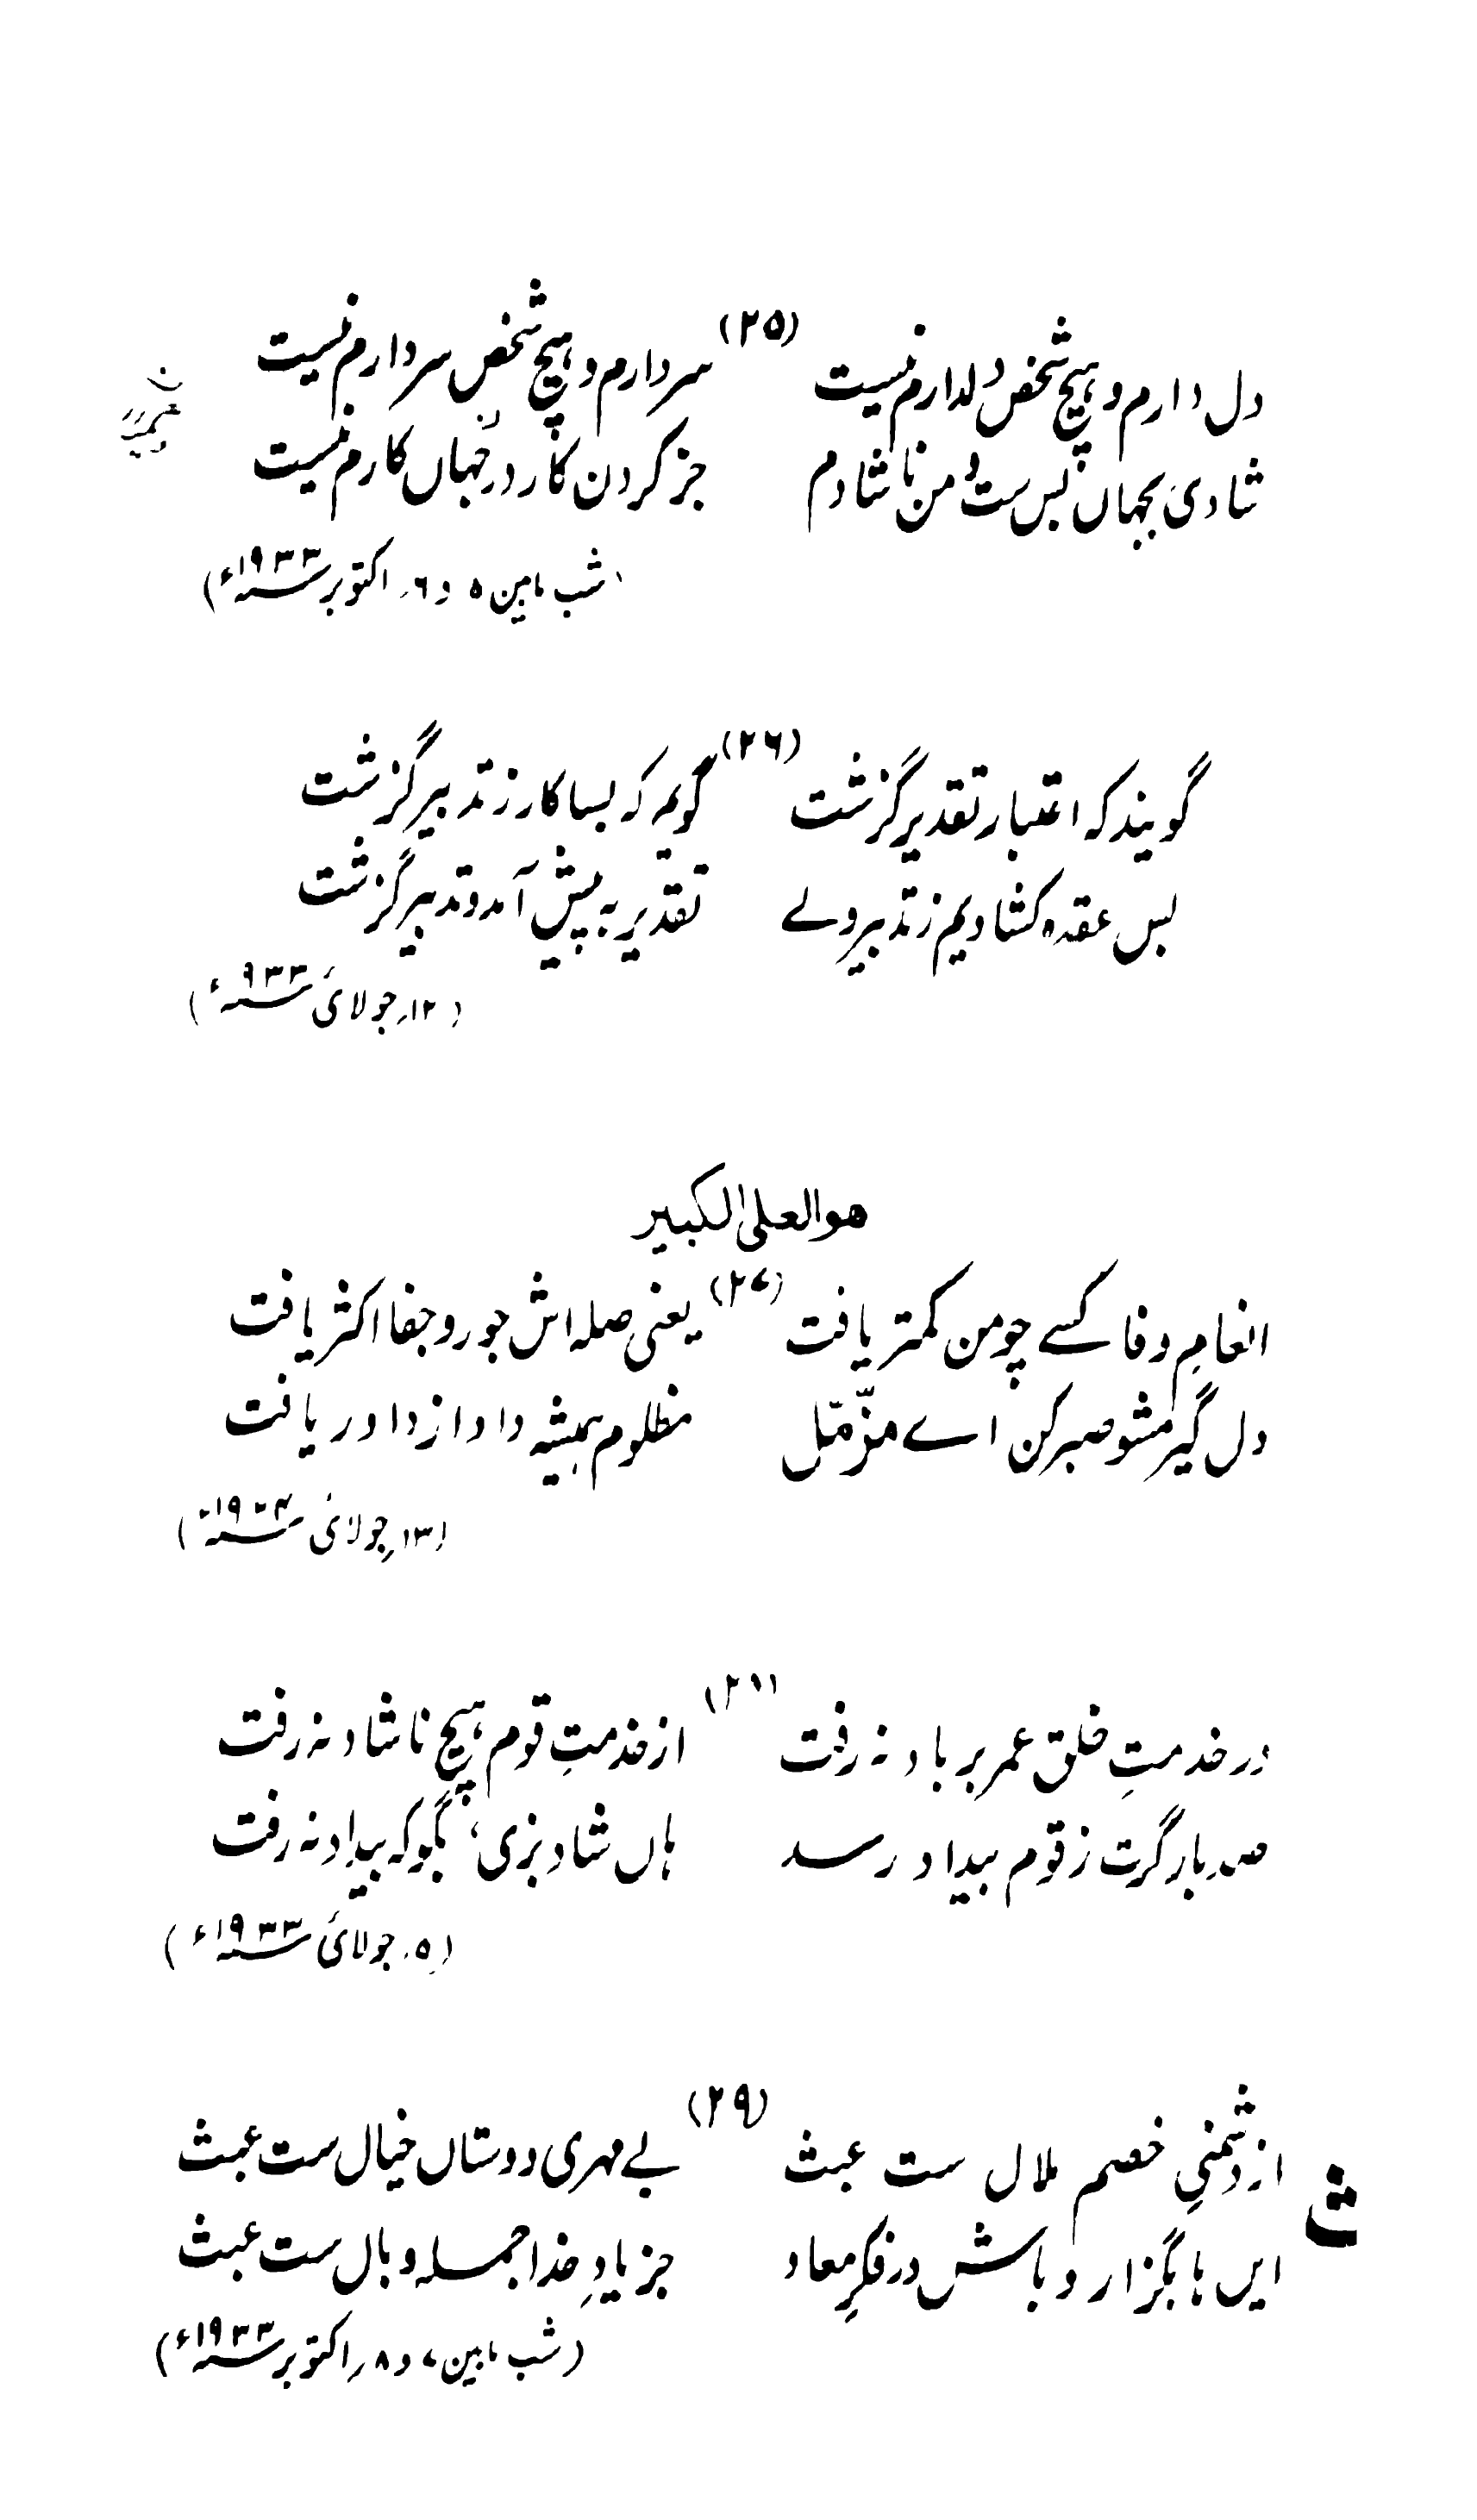 (۲۵)
دل دارم و ہیچ شخص دلدارم نیست
سر دارم و ہیچ شخص سردارم نیست
شادی بجہاں نبرست من ناشادم
جز کردن کار در جہاں کارم نیست
(شب مابین ۵ و ۶ اکتوبر ۱۹۳۳ء)
(۲۶)
گویند کہ اعتبار تقدیر گزشت
گویم کہ بسا کار ز تدبیر گزشت
بس عقدہ کشادیم ز تدبیر ولے
تقدیر بہ پیش آمد و تدبیر گزشت
(۱۲ جولائی ۱۹۳۳ء)
ھوالعلی الکبیر
(۲۷)
انعامِ وفا کسے چو من کمتر یافت
یعنی صلہ اش جور و جفا اکثر یافت
دل گیر مشو صبر کن اے مزّمّل
مظلوم ہمیشہ داد از داور یافت
(۱۳ جولائی ۱۹۳۳ء)
(۲۸)
در خدمتِ خلق عمر برباد نہ رفت
از خدمتِ قوم ہیچ ناشاد نہ رفت
صد بار گرت ز قوم بیداد رسد
ہاں شاد بزی، مگو کہ بیداد نہ رفت
(۵ جولائی ۱۹۳۳ء)
ث
(۲۹)
از دشمنیِ خصم ملال ست عبث
بے مہری دوستاں خیال ست عبث
ایں ہا بگزار و باش در فکرِ معاد
جز یادِ خدا جملہ وبال ست عبث
(شب مابین ۷ و ۸ اکتوبر ۱۹۳۳ء)